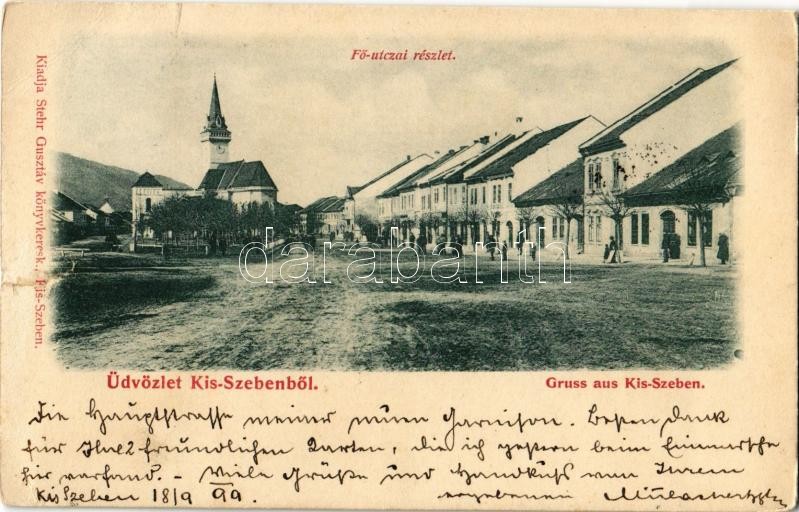 Fő-utczai részlet.
Kiadja Stehr Gusztáv könyvkeresk., Kis-Szeben.
darabanth
Üdvözlet Kis-Szebenből.
Gruss aus Kis-Szeben.
Die Hauptstrasse meiner neuen Garnison. Besten Dank
für Ihre 2 freundlichen Karten, die ich gestern beim Einmarsche
hier vorfand. - Viele Grüße und Handkuß von Ihrem
Kis Szeben 18/9 99. ergebenen